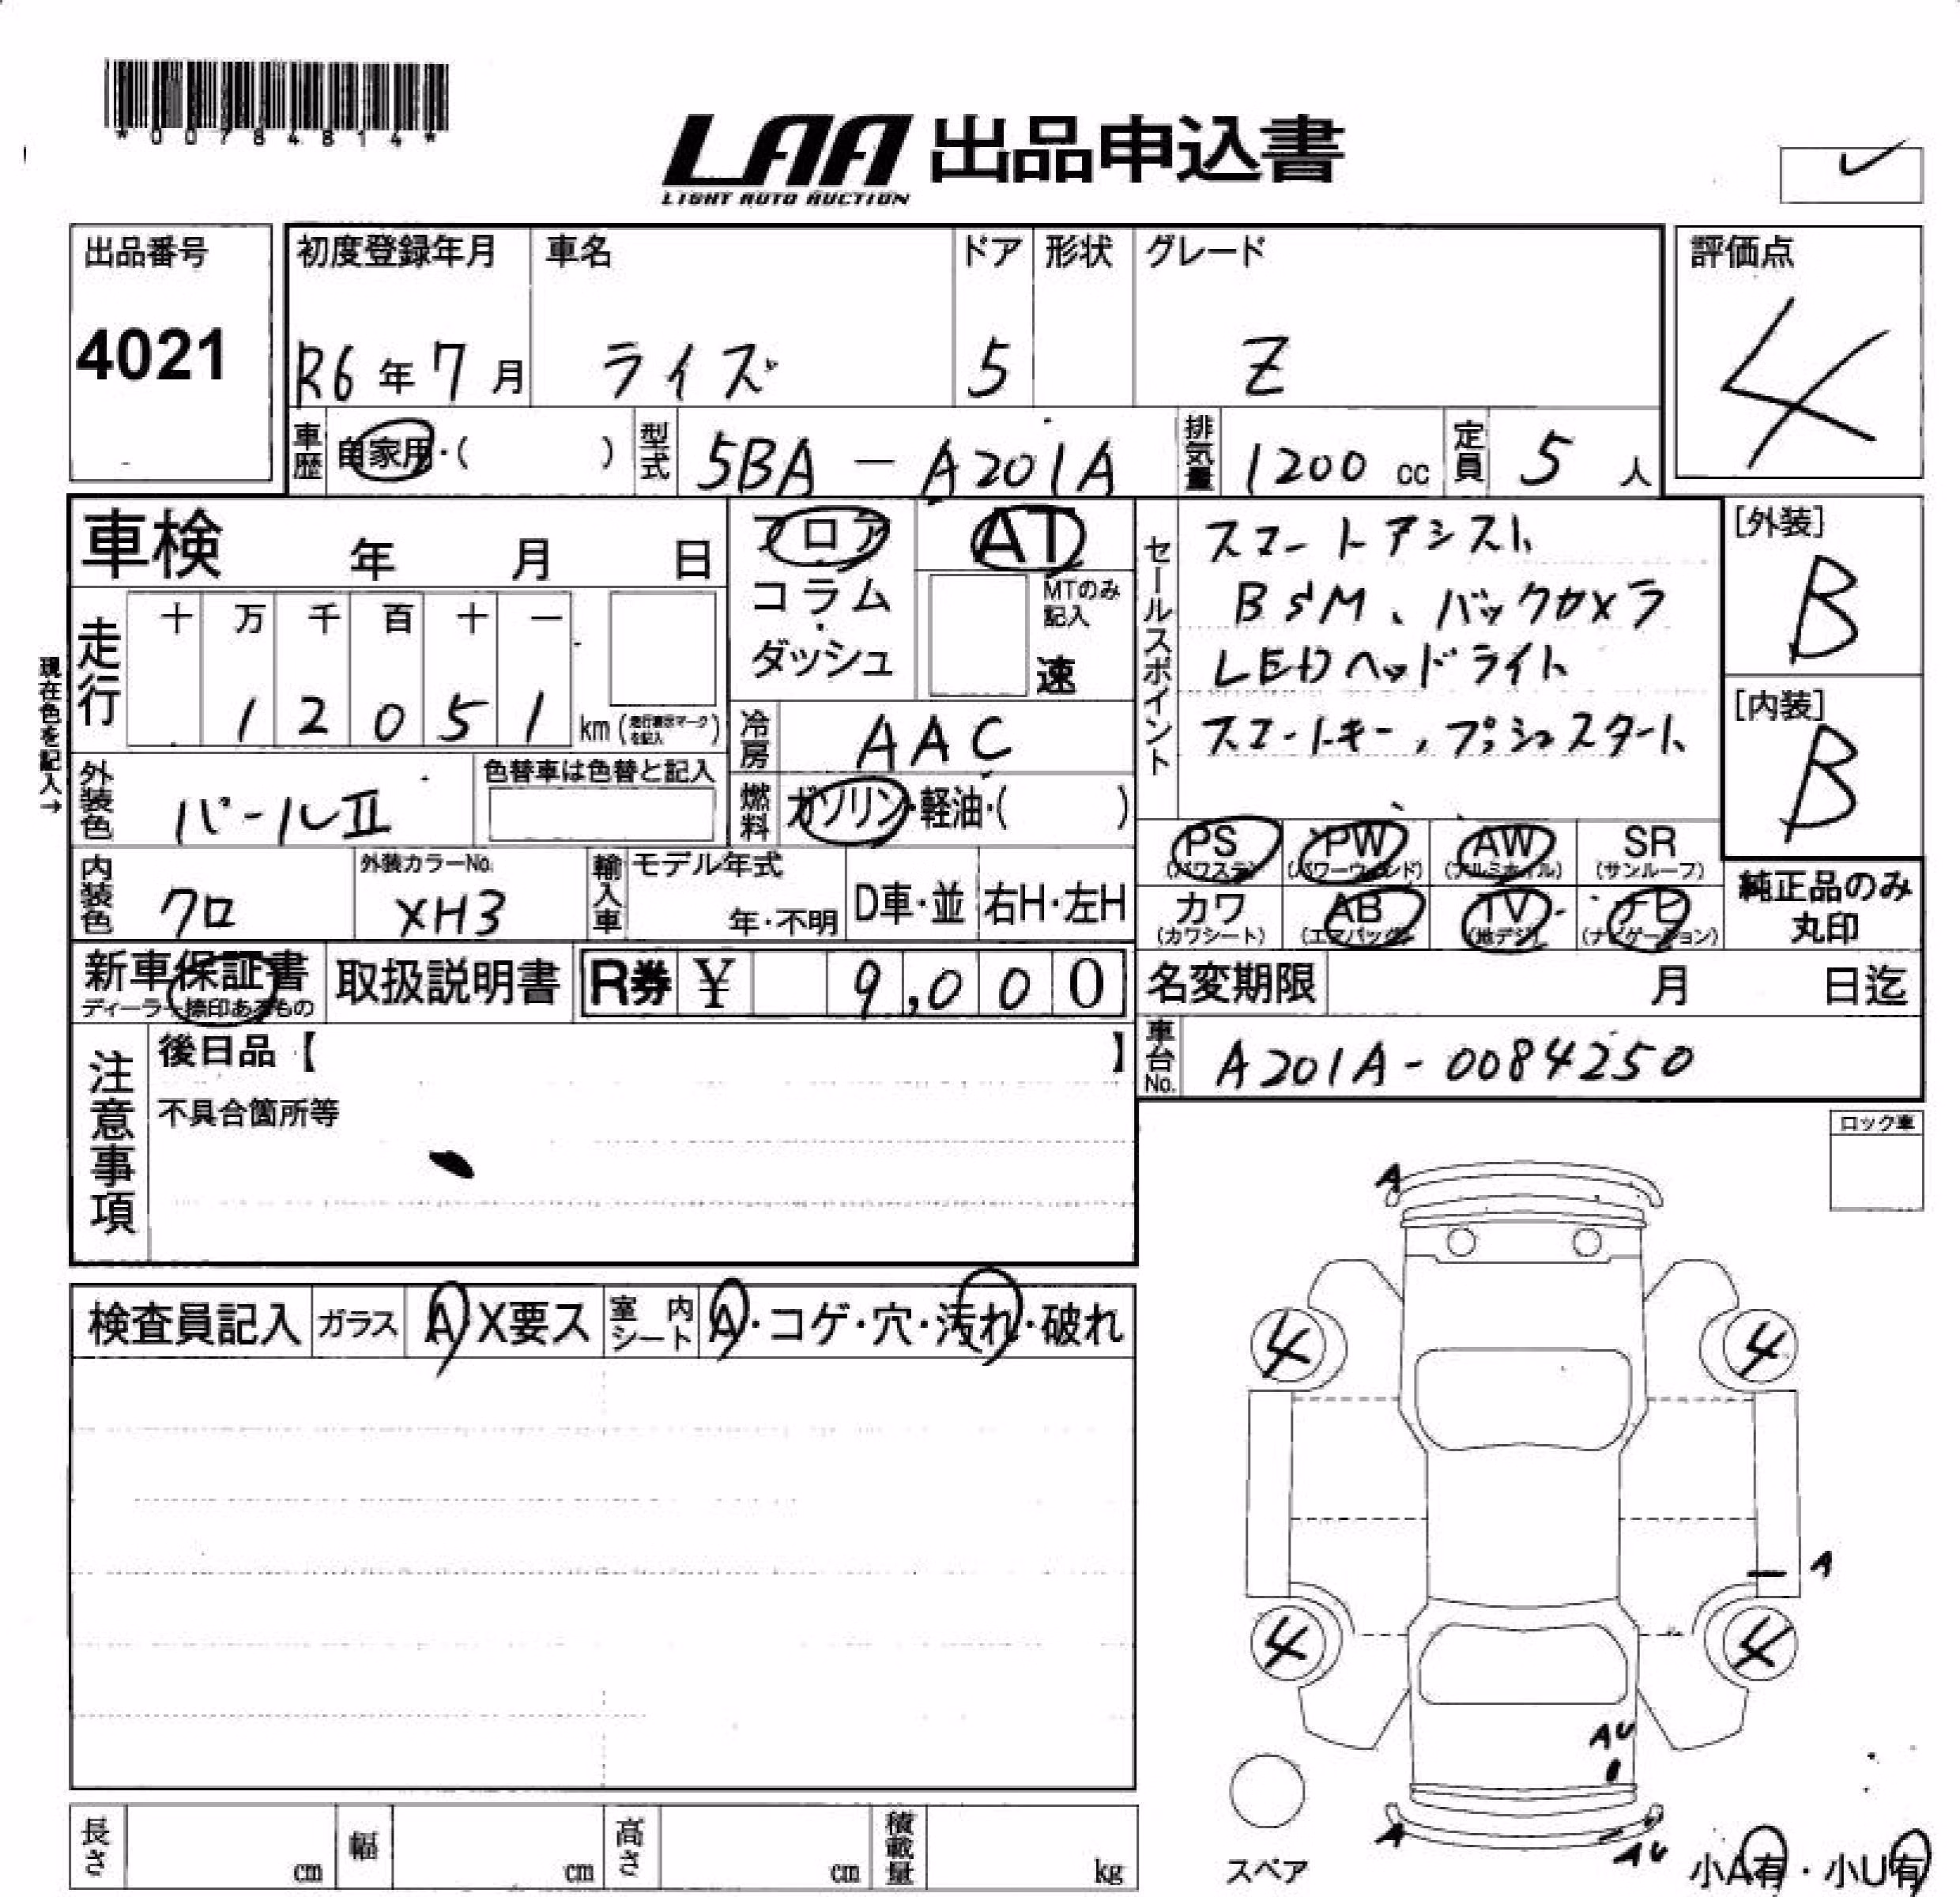 *00784814*
LAA 出品申込書
LIGHT AUTO AUCTION
出品番号
4021
初度登録年月 車名 ドア 形状 グレード
R6年7月 ライズ 5 Z
評価点
4
車歴 自家用・( ) 型式 5BA-A201A 排気量 1200cc 定員 5人
車検 年 月 日
フロア AT
コラム
ダッシュ
MTのみ記入
速
走行 十 万 千 百 十 一
12051 km (走行表示マークを記入)
現在色を記入→
冷房 AAC
外装色 パールⅡ
色替車は色替と記入
燃料 ガソリン・軽油・( )
セールスポイント
スマートアシスト
BSM、バックカメラ
LEDヘッドライト
スマートキー、プッシュスタート
[外装]
B
[内装]
B
内装色 クロ
外装カラーNo. XH3
輸入車 モデル年式 年・不明 D車・並 右H・左H
PS (パワステ) PW (パワーウィンド) AW (アルミホイル) SR (サンルーフ)
カワ (カワシート) AB (エアバッグ) TV (地デジ) ナビ (ナビゲーション)
純正品のみ丸印
新車保証書
ディーラー捺印あるもの
取扱説明書
R券 ¥ 9,000
名変期限 月 日迄
車台No. A201A-0084250
注意事項
後日品【 】
不具合箇所等
ロック車
検査員記入 ガラス A X要ス 室内シート A・コゲ・穴・汚れ・破れ
A
4 4
A
4 4
AU
A
AU
スペア
小A有・小U有
長さ cm 幅 cm 高さ cm 積載量 kg